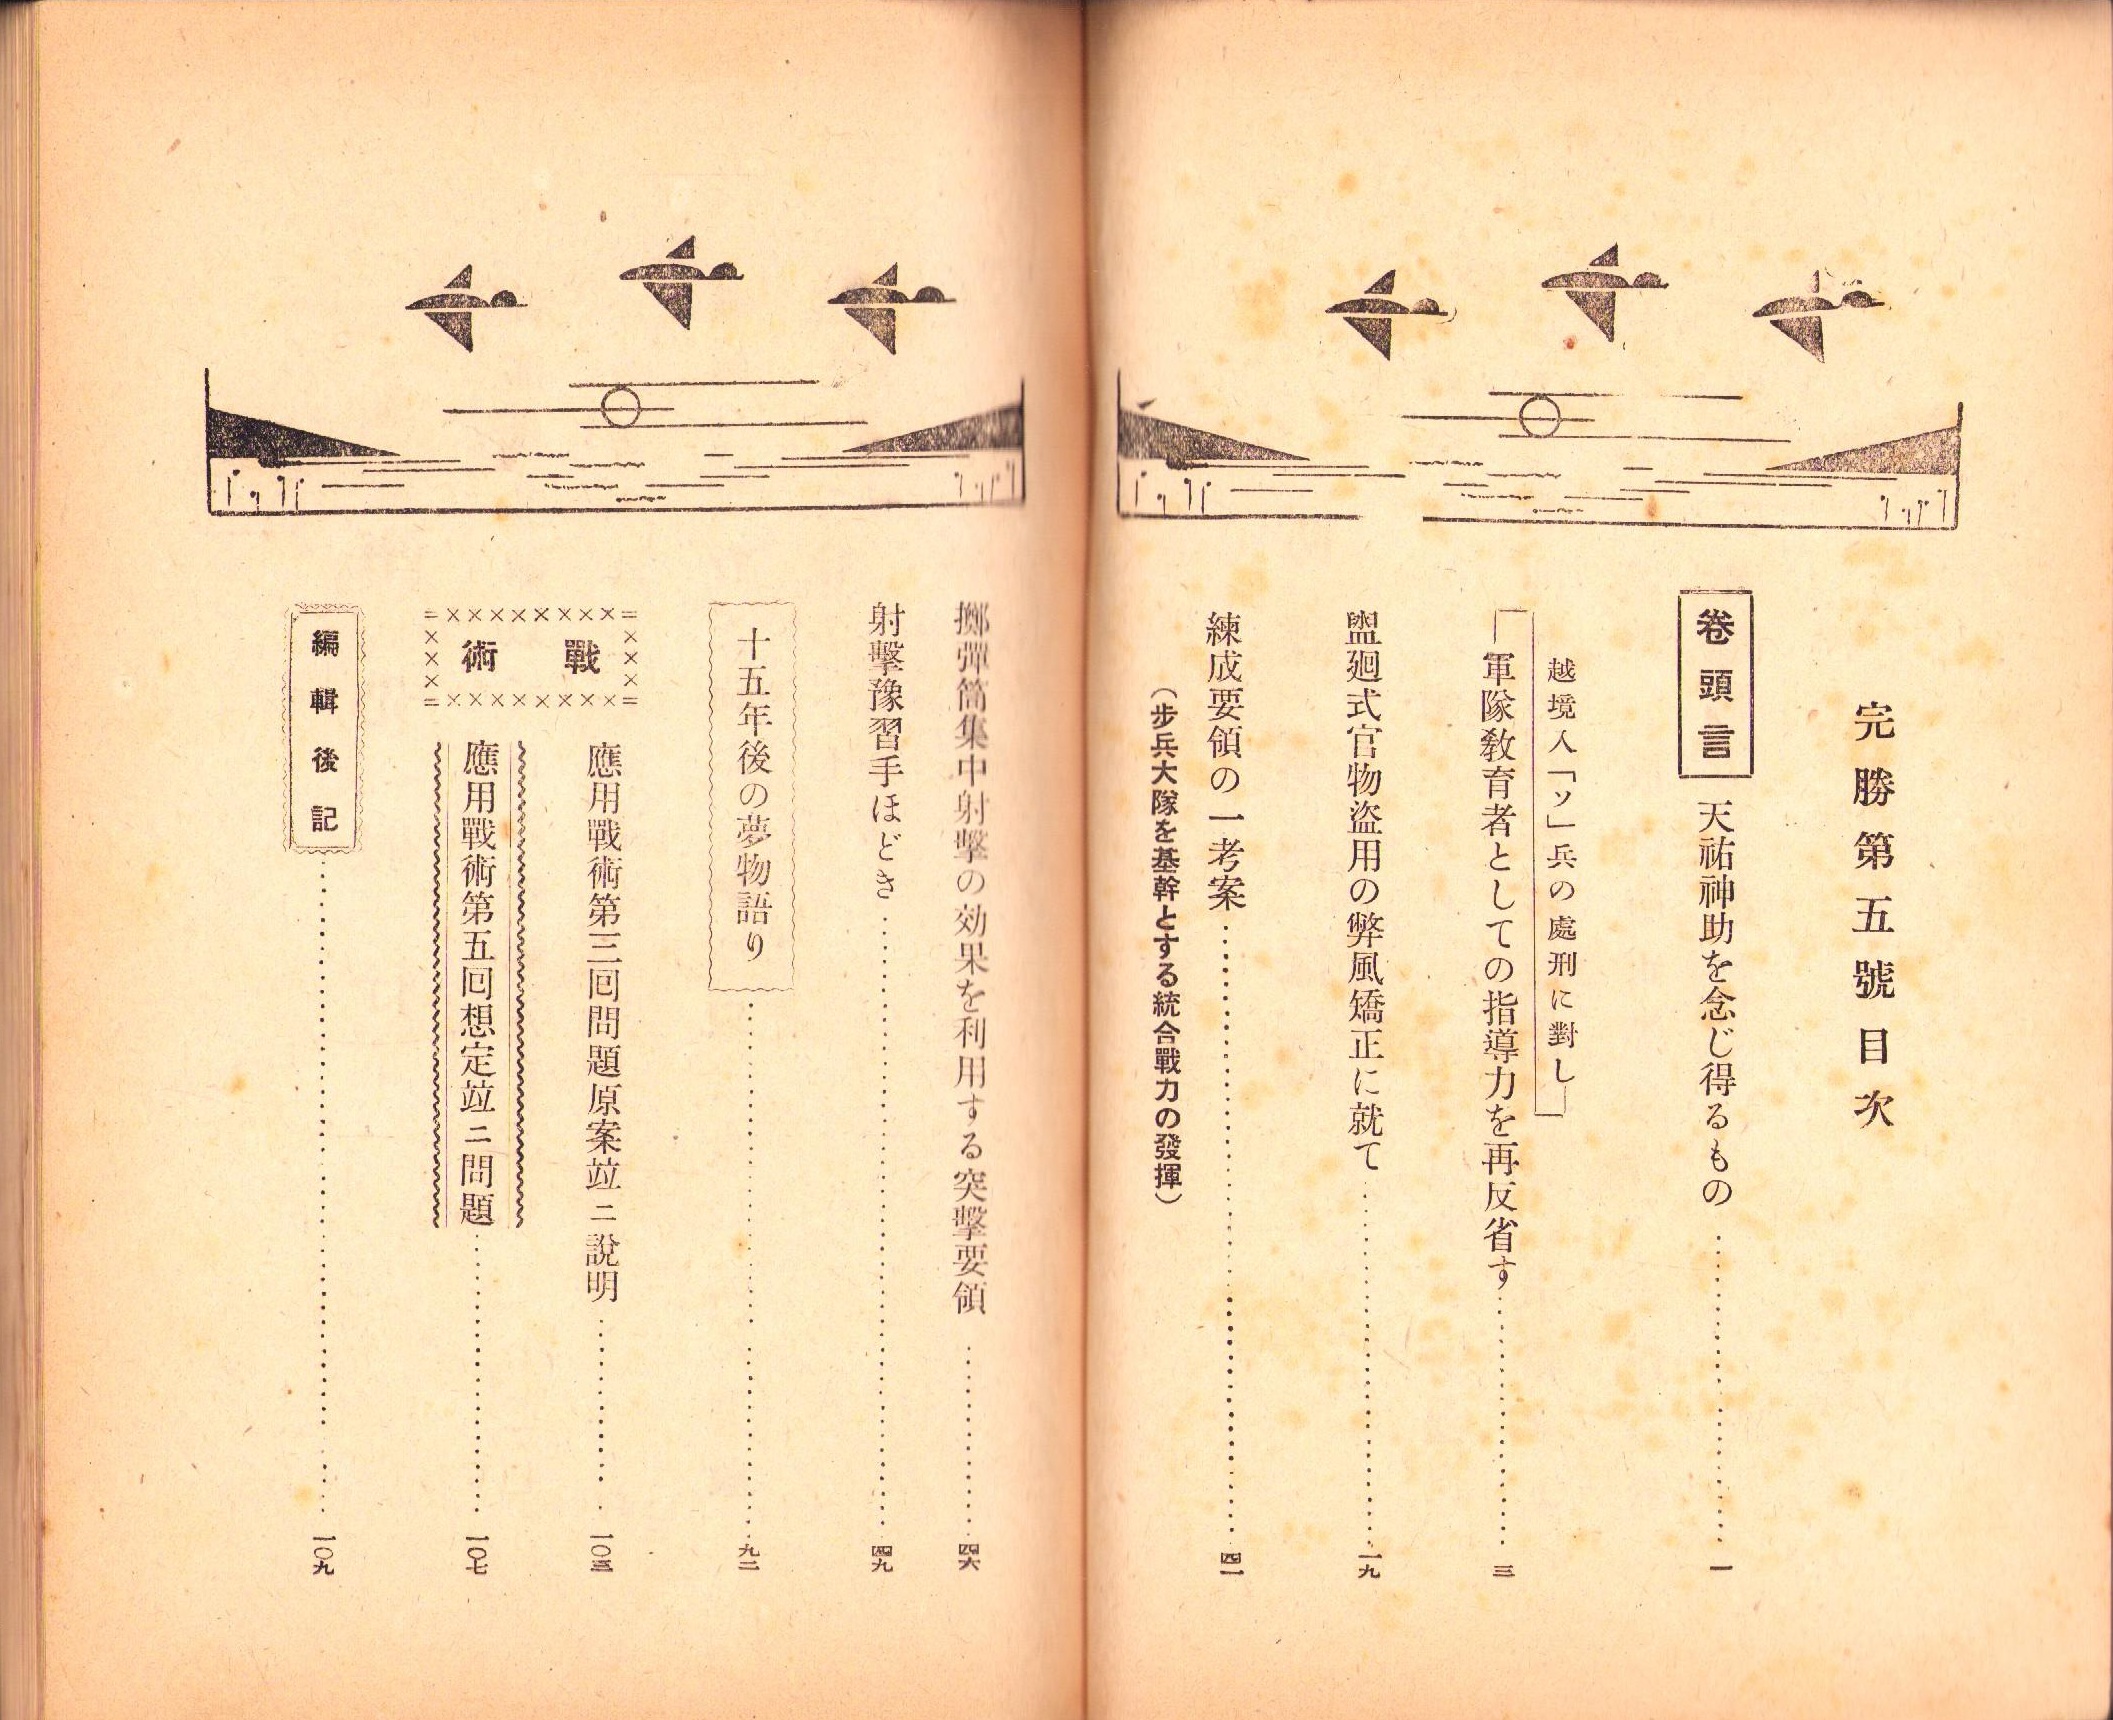 完勝第五號目次
卷頭言 天祐神助を念じ得るもの 一
越境人「ソ」兵の處刑に對し
軍隊敎育者としての指導力を再反省す 三
盥廻式官物盜用の弊風矯正に就て 一九
練成要領の一考案 四一
(步兵大隊を基幹とする統合戰力の發揮)
擲彈筒集中射擊の効果を利用する突擊要領 四六
射擊豫習手ほどき 四九
十五年後の夢物語り 九二
戰術
應用戰術第三回問題原案竝ニ說明 一〇三
應用戰術第五回想定竝ニ問題 一〇七
編輯後記 一〇九